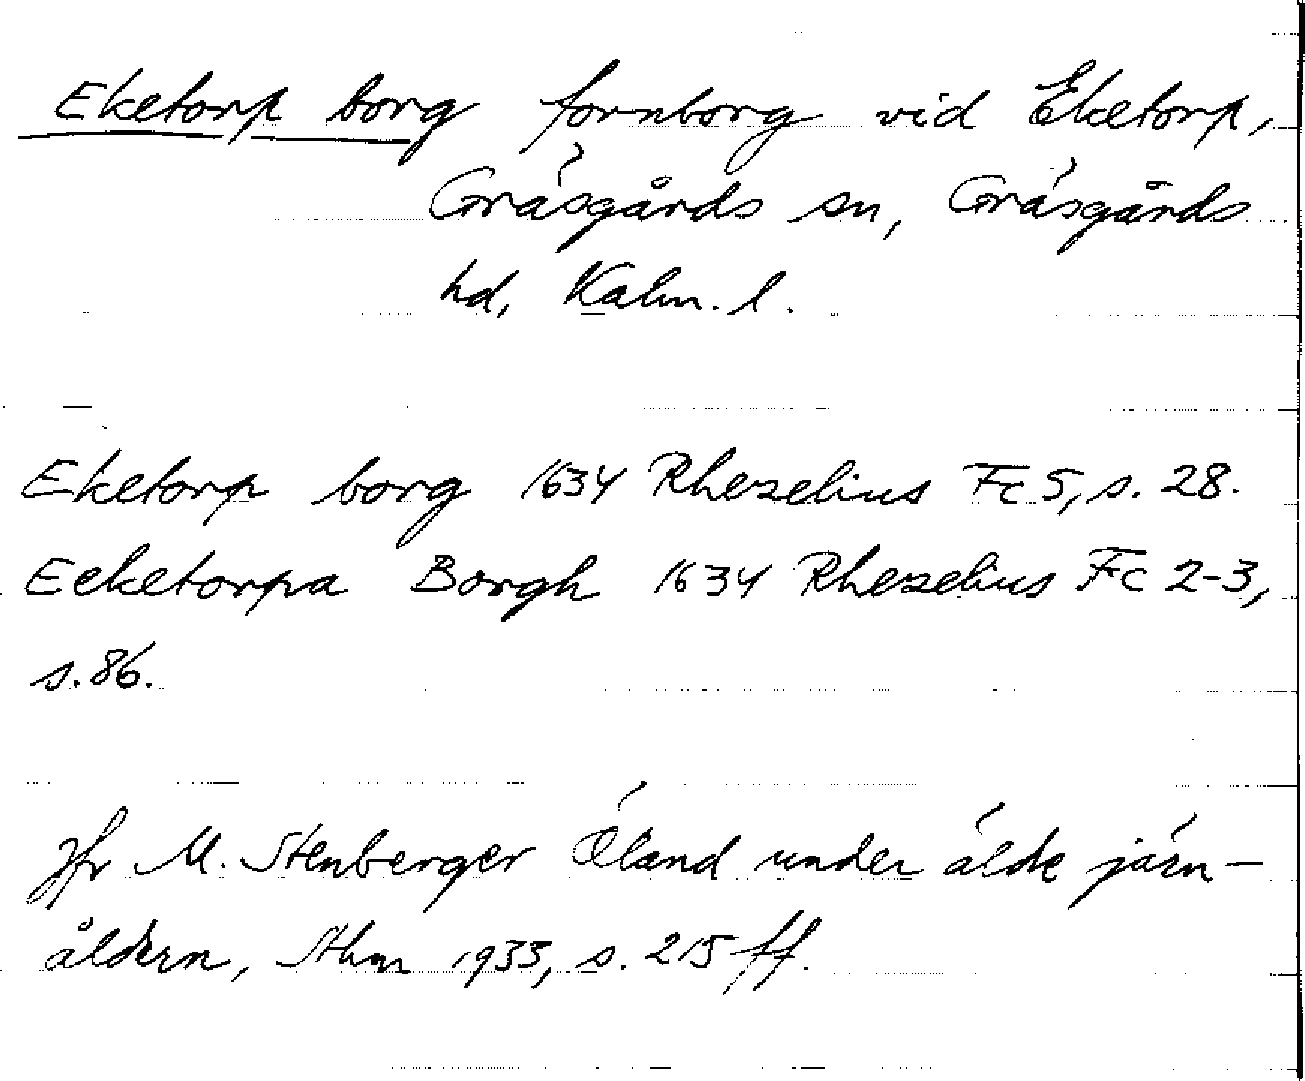 Eketorp borg fornborg vid Eketorp,
Gräsgårds sn, Gräsgårds
hd, Kalm. l.
Eketorp borg 1634 Rhezelius Fc 5, s. 28.
Ecketorpa Borgh 1634 Rhezelius Fc 2-3,
s. 86.
Jfr M. Stenberger Öland under äldre järn-
åldern, Sthm 1933, s. 215 ff.